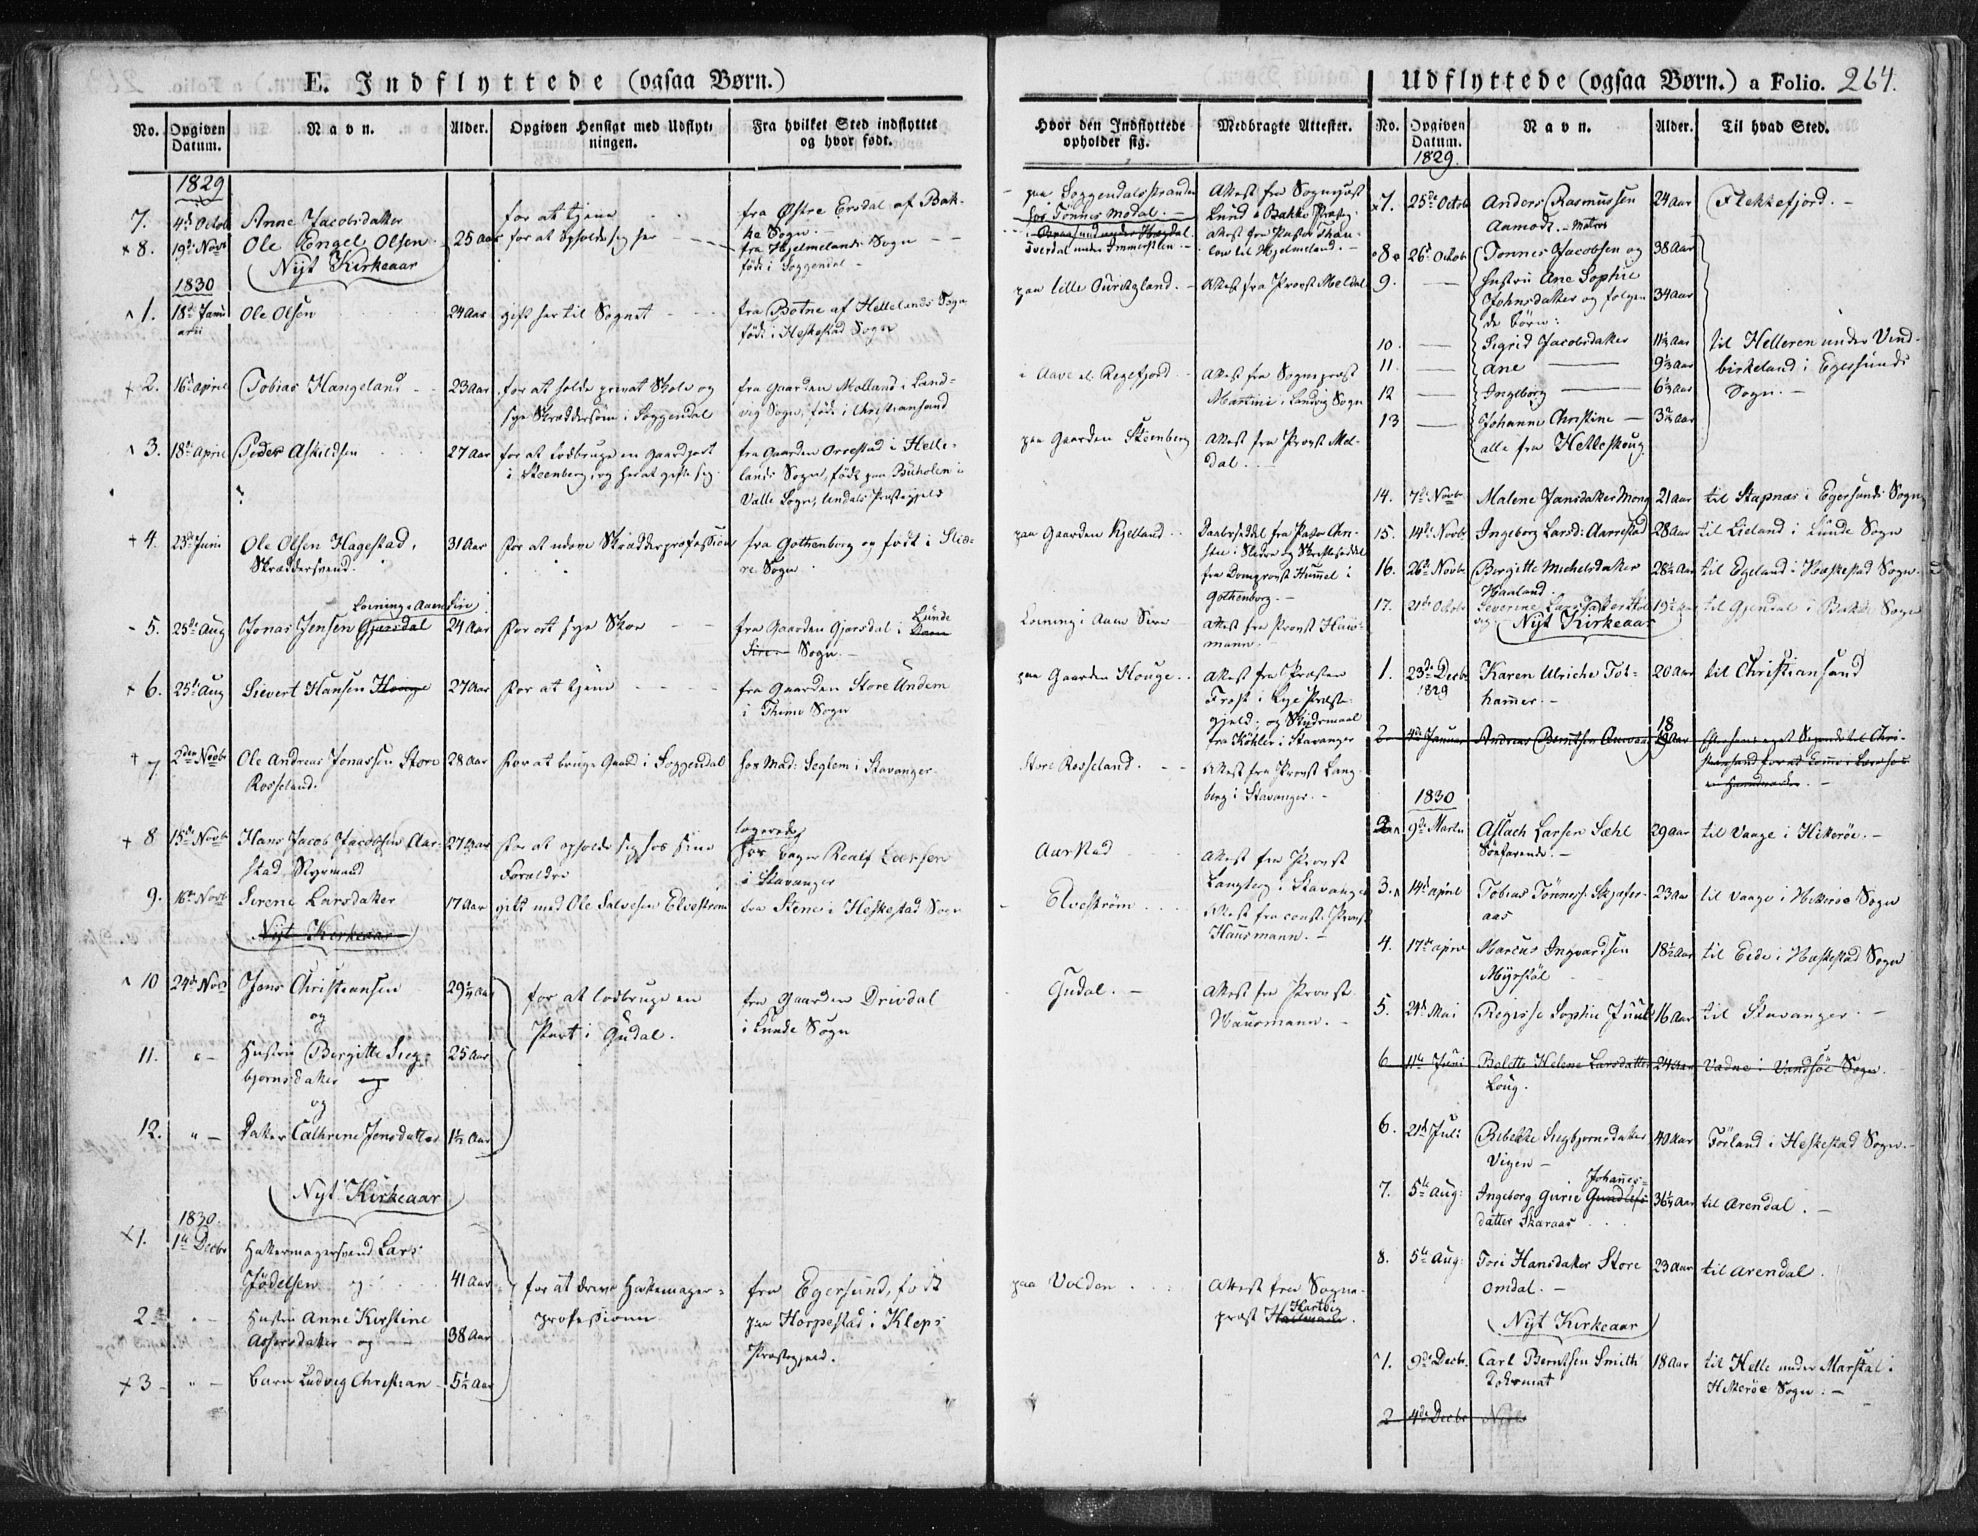 E. Indflyttede (ogsaa Børn.)
No. Opgiven Datum. Navn. Alder. Opgiven Hensigt med Udflytningen. Fra hvilket Sted indflyttet og hvor født.
1829
7. 4de Octob Anne Jacobsdatter for at tjene fra Østre Ersdal af Bakke Sogn
8. 19de Novb Ole Engel Olsen 25 aar for at opholde sig her fra Hjelmelands Sogn
født i Soggendal
Nyt Kirkeaar
1830
1. 18de Januarii Ole Olsen 24 aar gift her til Sognet fra Botne af Hellelands Sogn
født i Heskestad Sogn
2. 16de april Tobias Hangeland 23 aar for at holde privat Skole og
sye Skræddersøm i Soggendal
fra Gaarden Molland i Landvig Sogn, født i Christiansand
3. 18de April Peder Askildsen 27 aar for at lodbruge en Gaardpart
i Steenberg, og her at gifte sig.
fra Gaarden Orrestad i Hellelands Sogn, født paa Buholen i
Valle Sogn, Undals Præstegjeld
4. 23de Juni Ole Olsen Hagestad, 31 aar For at udøve Skrædderprofession fra Gothenborg og født i Slidre Sogn
Skræddersvend.
Loening i Aaen Sire
5. 25de Aug Jonas Jensen Gjersdal 24 aar For at sye Skoe fra Gaarden Gjersdal i Lunde
Sogn.
6. 25de Aug Sievert Hansen Houge 27 aar For at tjene fra Gaarden Store Undem
i Thime Sogn
7 2den Novbr Ole Andreas Jonassen Store 28 aar For at bruge Gaard i Soggendal hos Mad: Seglem i Stavanger
Rosseland.
8 15de Novb Hans Jacob Jacobsen Aarstad, Styrmand 27 aar For at opholde sig hos sine
Forældre
logerede
hos Bager Realf Larsen
i Stavanger
9. 16de Novb Serene Larsdatter 17 aar gift med Ole Salvesen Elvestrøm fra Stene i Heskestad Sogn
Nyt Kirkeaar
10 24de Nov Jens Christensen 29¼ aar for at lodbruge en
Part i Gudal.
fra Gaarden Drivdal
i Lunde Sogn
og
11. " – Hustru Bergitte Siegbjørnsdatter og 25 aar
og
12. " – Datter Cathrine Jensdatter 1½ aar
Nyt Kirkeaar
1830
1. 1te Decbr Hattemagersvend Lars
Jødelsen og 41 aar for at drive Hattemagerprofessionen fra Egersund, født
paa Horpestad i Kleps
Præstegjeld.
2 " – Hustru Anne Kirstine
Assersdatter og 38 aar
3 " – Barn Ludvig Christian 5½ aar
Hvor den Indflyttede opholder sig. Medbragte Attester.
paa Soggendalsstranden
hos Tønnes Modal. –
Attest fra Sognepræst
Lund i Bakke Præsteg.
paa lille Ourdgland. Attest fra Provst Meldal
i Aave al Regefjord Attest fra Sognepræst
Martini i Landvig Sogn
paa Gaarden Steenberg Attest fra Provst Meldal.
paa Gaarden Kjelland
fra Domprovst Hummel i
Gothenborg. –
Loening i Aaen Sire Attest fra Provst Hausmann.
paa Gaarden Houge Attest fra Præsten
Frost i Lye Præstegjeld, og Skudsmaal
fra Köhler i Stavanger
Store Rosseland. Attest fra Provst Langberg i Stavanger. –
Aarstad Attest fra Provst
Langberg i Stavanger
Elvestrøm Attest fra const. Provst
Hausmann. –
Gudal. – Attest fra Provst
Hausmann. –
paa Volden Attest fra Sognepræst Hartvig
Udflyttede (ogsaa Børn.) a Folio. 264.
No. Opgiven Datum. Navn. Alder. Til hvad Sted.
1829.
7. 25de Octob Anders Rasmussen 24 aar Flekkefjord. –
Aamodt. – Matros
8 26de Octob Tønnes Jacobsen og 38 aar
9. — Hustru Ane Sophie
Johnsdatter og følgende Børn: 34 aar
10. — Sigrid Jacobsdatter 11½ aar til Helleren under Vindbirkeland i Egersunds
Sogn. –
11. — Ane — 9½ aar
12 — Ingeborg — 6½ aar
13 — Johanne Christine — 3¾ aar
alle fra Hetleskoug
14. 7de Novb Malene Jansdatter Mong 21 aar til Stapnes i Egersunds Sogn
15. 14de Novb Ingeborg Larsd: Aarrestad 28 aar til Lieland i Lunde Sogn
16. 26de Novb Bergitte Michelsdatter 28½ aar til Egeland i Heskestad Sogn
Haaland.
17. 21de Octob Severine Larsdatter 19½ aar til Gjendal i Bakke Sogn
Nyt Kirkeaar
1. 23de Decb 1829 Karen Ulriche Tothammer. – 20 aar til Christiansand
2 4de Januar Andreas Berntsen 18
1830
2 9de Martii Aslach Larsen Sæhl 29 aar til Vaage i Hitterøe. –
Søefarende. –
3. 14de april Tobias Tønness: Skjefteraas 23 aar til Vaage i Hitterøe Sogn
4. 17de april Marcus Ingvardsen 18½ aar til Eide i Heskestad Sogn
Myrstøl
5. 24de Mai Regisse Sophie Juul 16 aar til Stavanger. –
6 11te Juni Bolette Helene Larsdatter 24 aar Vadne i Vandsøe Sogn.
Loug.
6. 21de Juli Rebekke Siegbjørnsdatter 40 aar Førland i Heskestad Sogn. –
Vigen –
7. 5te Aug: Ingeborg Gurie Gundlefs Johannes-
datter Skaraas 36½ aar til Arendal. –
8. 5te Aug: Tori Hansdatter Store 23 aar til Arendal.
Omdal. –
Nyt Kirkeaar
1. 9de Decbr. Carl Berntsen Smith 18 aar til Helle under Marstal i
Hitterøe Sogn: –
2 4de Decbr